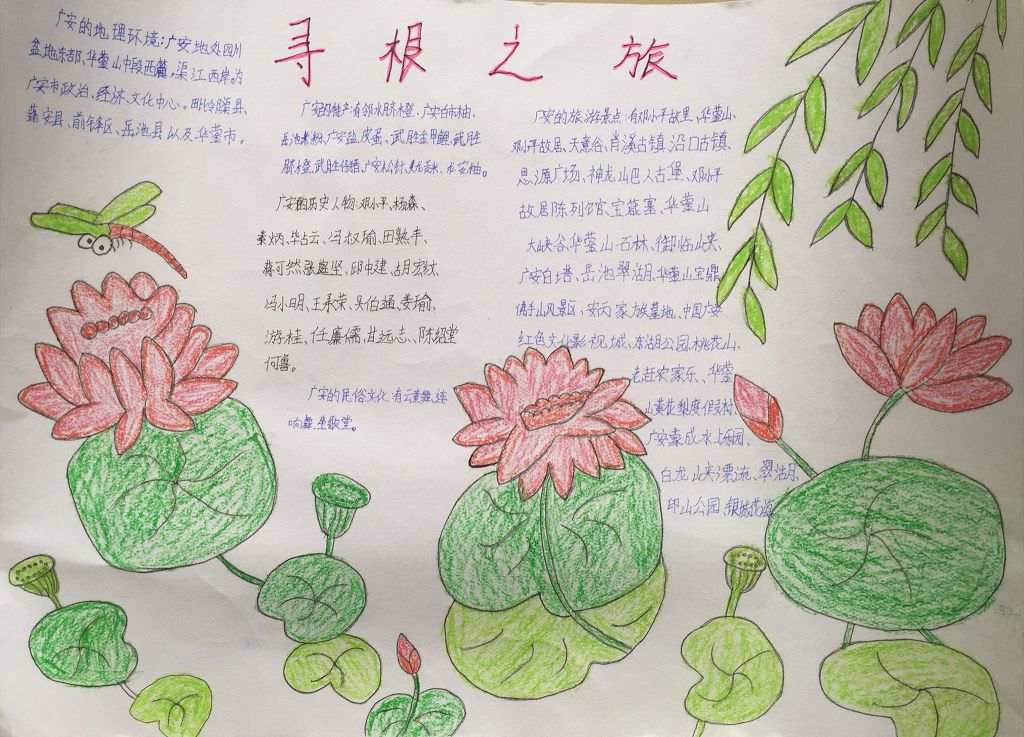 寻根之旅
广安的地理环境:广安地处四川
盆地东部、华蓥山中段西麓,渠江西岸。为
广安市政治、经济、文化中心。毗邻渠县、
县、前锋区、岳池县以及华蓥市。
广安的特产:有邻水脐橙、广安白市柚、
岳池米粉、广安盐皮蛋、武胜金甲鲤、武胜
脐橙、武胜仔猪、广安松针、黄龙贡米、龙安柚。
广安的历史人物:邓小平、杨森、
秦炳、华占云、冯叔瑜、田熟丰、
蒋可然、张庭坚、邱中建、胡宏纹、
冯小明、王承荣、吴伯通、姜瑜、
游桂、任廉儒、甘远志、陈绍堂
何鲁。
广安的民俗文化:有云童舞、连
响舞、坐歌堂。
广安的旅游景点:有邓小平故里、华蓥山、
邓小平故居、天意谷、肖溪古镇、沿口古镇、
思源广场、神龙山巴人古堡、邓小平
故居陈列馆、宝箴塞、华蓥山
大峡谷、华蓥山石林、御临峡、
广安白塔、岳池翠湖、华蓥山宝鼎、
佛手山风景区、安丙家族墓地、中国广安
红色文化影视城、东湖公园、桃花山、
老赶农家乐、华蓥
山黄花梨度假村、
广安 成水上乐园、
白龙峡漂流、翠湖月、
印山公园、银城花海